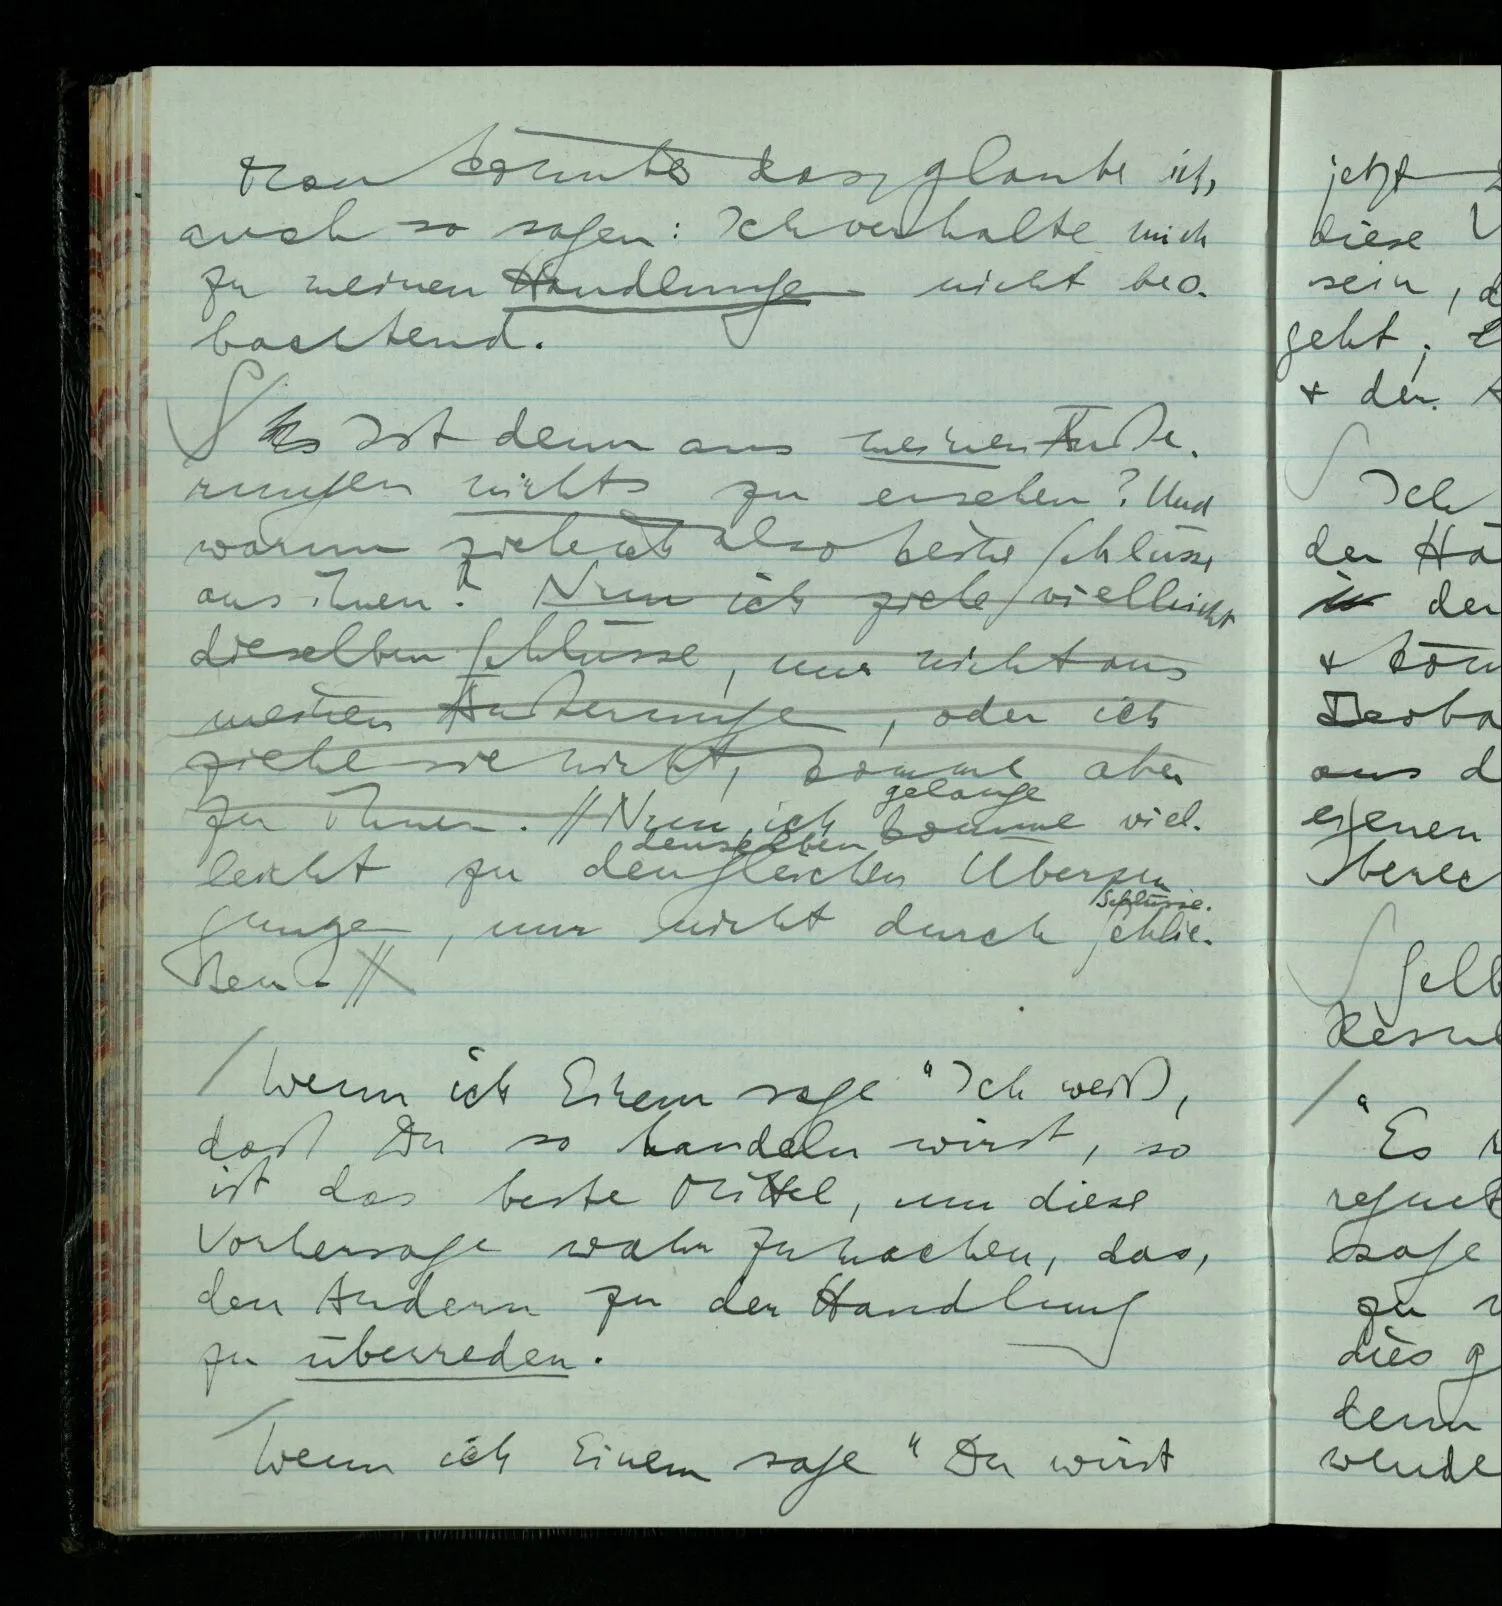 Man könnte das, glaube ich,
auch so sagen: Ich verhalte mich
zu meinen Handlungen nicht beo-
bachtend.
Ist denn aus meinen Äuße-
rungen nichts zu ersehen? Und
warum ziehe ich also keine Schlüsse
aus ihnen? Nun ich ziehe vielleicht
dieselben Schlüsse, nur nicht aus
meinen Äußerungen, oder ich
ziehe sie nicht, komme aber
zu ihnen. // Nun, ich komme viel-
gelange
leicht zu den gleichen Überzeu
denselben
gungen, nur nicht durch Schlie-
Schlüsse.
ßen. //
/ Wenn ich Einem sage "Ich weiß,
daß Du so handeln wirst, so
ist das beste Mittel, um diese
Vorhersage wahr zu machen, das,
den Andern zu der Handlung
zu überreden.
/ Wenn ich Einem sage "Du wirst
jetzt
diese
sein, d
geht;
+ der
Ich
der
in der
+
aus d
eigenen
"Es
sage
zu
dies g
denn